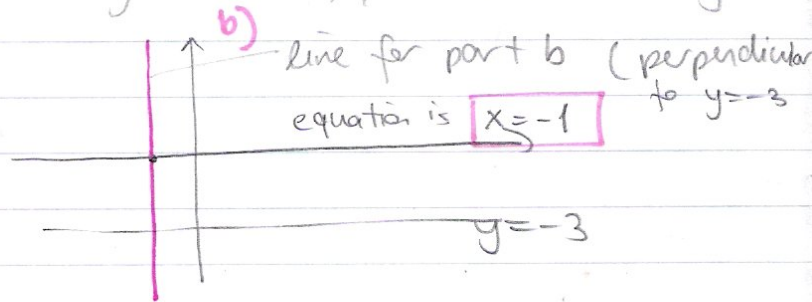 b)
line for part b (perpendicular
to y=-3
equation is x=-1
y=-3